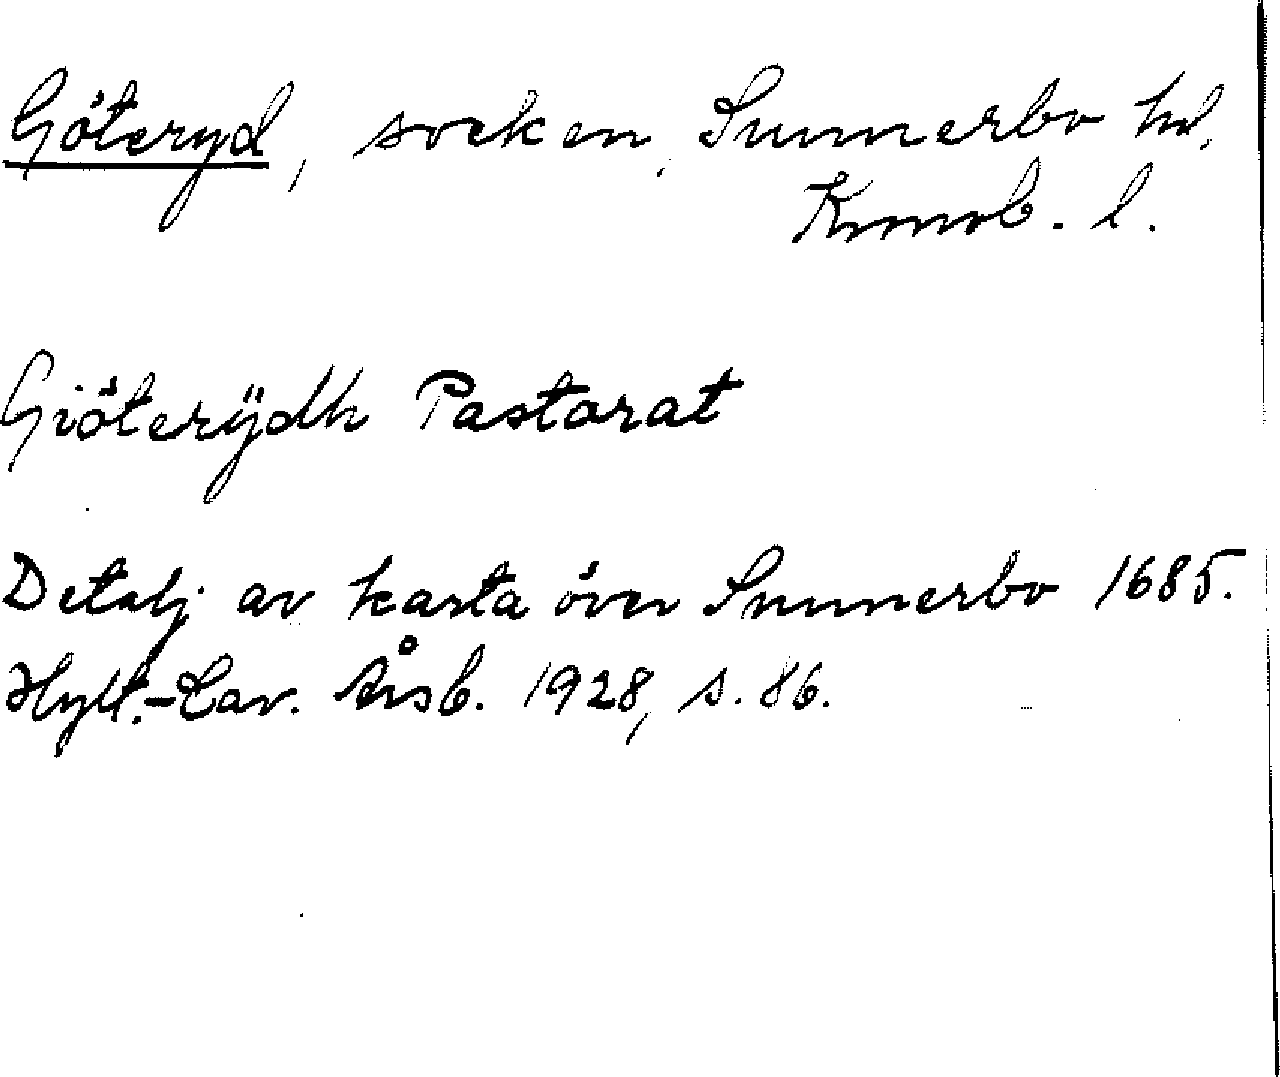 Göteryd, socken, Sunnerbo hd,
Kronob. l.
Giöterÿdh Pastorat
Detalj av karta över Sunnerbo 1685.
Hylt.-Cav. Årsb. 1928, s. 86.